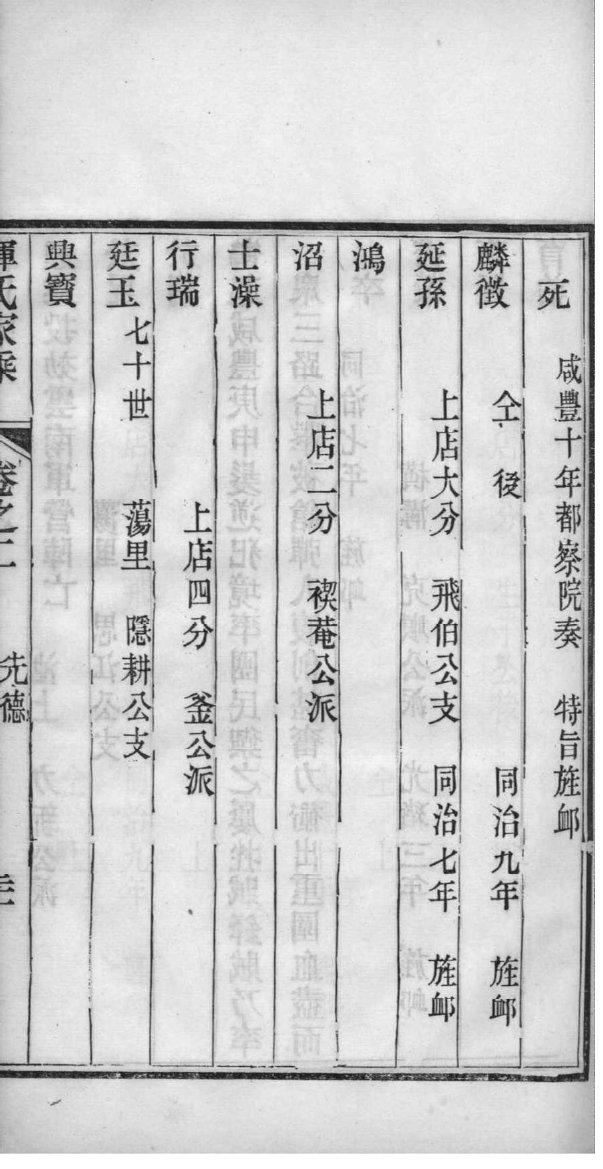 死　咸豐十年都察院奏　特旨旌卹
麟徵　仝後　同治九年　旌卹
延孫　上店大分　飛伯公支　同治七年　旌卹
鴻
沼　上店二分　禊菴公派
士澡
行瑞　上店四分　釜公派
廷玉　七十世　蕩里　隱耕公支
興寶
惲氏家乘　卷之二　先德